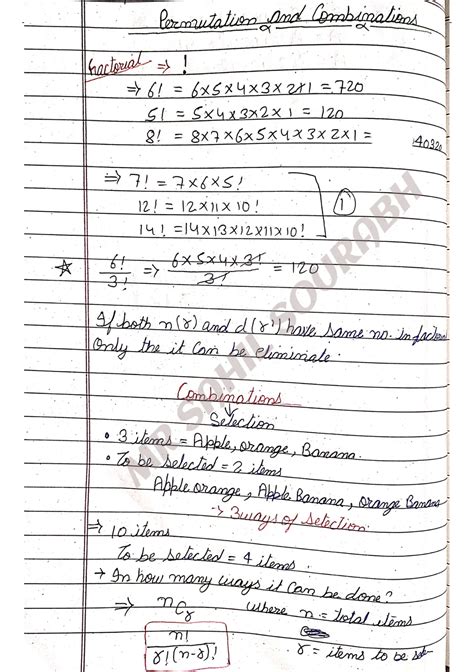 Permutation and Combinations
Factorial ⇒ !
⇒ 6! = 6×5×4×3×2×1 = 720
5! = 5×4×3×2×1 = 120
8! = 8×7×6×5×4×3×2×1 = 40320
⇒ 7! = 7×6×5!
12! = 12×11×10!
14! = 14×13×12×11×10!
1
☆ 6!/3! ⇒ 6×5×4×3!/3! = 120
If both n(r) and d(r) have same no. in factori
Only the it can be eliminate.
Combinations
Selection
• 3 items = Apple, orange, Banana.
• To be selected = 2 items
Apple orange, Apple Banana, orange Banana
→ 3 ways of selection.
⇒ 10 items
To be selected = 4 items.
→ In how many ways it can be done?
⇒ nCr where n = total items
n!/r!(n-r)! r = items to be sel-
MR SAHIL SOURABH